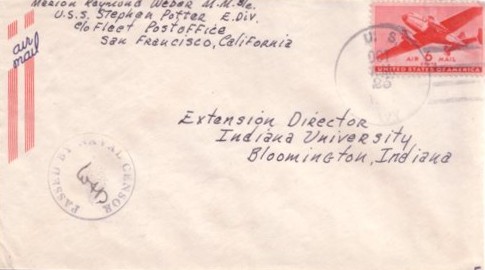 Marion Raymond Weber M.M.2/c.
U.S.S. Stephan Potter E. Div.
c/o Fleet Post Office
San Francisco, California
air
mail
U. S.
25
6¢
AIR MAIL
UNITED STATES OF AMERICA
Extension Director
Indiana University
Bloomington, Indiana
PASSED BY NAVAL CENSOR